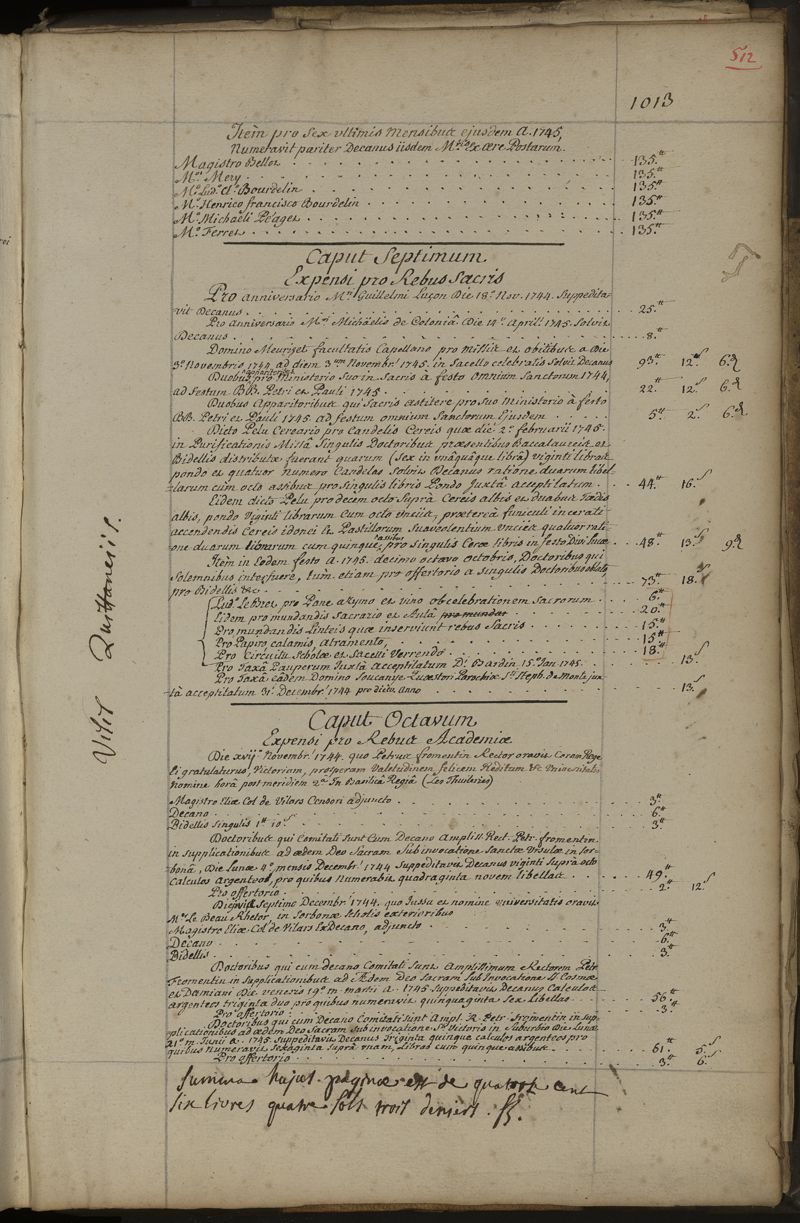 512
1013
Item pro sex ultimis mensibus ejusdem A. 1745,
Numeravit pariter Decanus iisdem M.ris ex aere Postarum.
Magistro Bellot 135.tt
M.ro Mery 135.tt
M.ro Lud.o Cl.o Bourdelin 135.tt
M.ro Henrico francisco Bourdelin 135.tt
M.ro Michaeli Péaget 135.tt
M.ro Ferret 135.tt
Caput Septimum
Expensi pro Rebus Sacris
Pro anniversario M.ri Guillelmi Luçon Die 18.a Nov. 1744. Suppedita-
vit Decanus 25.tt
Pro Anniversario M.ri Michaelis de Coloniâ Die 14.a April. 1745. Solvit
Decanus 8.tt
Domino Meurizet facultatis Capellano pro Missis et obitibus a Die
3.a Novembris 1744 ad diem 3.am Novembr. 1745. in Sacello celebratis Solvit Decanus 93.tt 12.s 6.d
Duobus pro Ministerio Suo in Sacris à festo Omnium Sanctorum 1744,
ad festum BB. Petri et Pauli 1745 22.tt 12.s 6.d
Duobus Apparitoribus qui Sacris astitere pro Suo Ministerio à festo
BB. Petri et Pauli 1745 ad festum omnium Sanctorum Ejusdem 5.tt 2.s 6.d
Dicto Pelu Cereario pro Candelis Cereis quae die 2.a februarii 1745.
in Purificationis Missâ Singulis Doctoribus praesentibus Baccalaureis et
Bidellis distributae fuerant quarum (Sex in unâquâque librâ) viginti libras
pondo et quatuor numero Candelas Solvit Decanus ratione duarum libel-
larum cum octo assibus pro Singulis libris Pondo Juxtà acceptilatum 44.tt 16.s
Eidem dicto Pelu pro decem octo Suprà Cereis albis et duabus Taedis
albis, pondo Viginti librarum Cum octo Unciis, praetereà funiculi incerati
accendendis Cereis idonei & Pastillorum Suaveolentium Unciis quatuor rati-
one duarum librarum cum quinque assibus pro Singulis Cerae libris in festo Divi Lucae 48.tt 13.s 9.d
Item in Eodem festo A. 1745. decimo octavo octobris, Doctoribus qui
Solemnibus interfuere, tum etiam pro offertorio a Singulis Doctoribus oblato,
pro Bidellis &c. 73.tt 18.s
Lud. Le Bret pro Pane azymo et vino ob celebrationem Sacrorum 6.tt
Eidem pro mundandis Sacrario et Aulâ 20.tt
Pro mundandis Linteis quae inserviunt rebus Sacris 15.tt
Pro Papiro calamis, atramento, 15.tt
Pro Circuitu Scholae et Sacelli Verrendo 18.tt
Pro Taxâ Pauperum Juxtà Acceptilatum D.i Bardin 15.a Jan. 1745 13.s
Pro Taxâ eâdem Domino Quaestori Parochiae S.ti Steph. de Monte jux-
tà acceptilatum 31. Decembr. 1744 pro dicto Anno 13.s
Visis Quittanciis.
Caput Octavum
Expensi pro Rebus Academiae
Die xvij.a Novembr. 1744. quo Petrus fromentin Rector oravit Coram Rege
Ei gratulaturus, Victoriam, prosperam Valetudinem, felicem Reditum &c Universitatis
Nomine horâ post meridiem 2.a In Basilicâ Regiâ (Les Thuileries)
Magistro Eliae Col de Vilars Censori adjuncto 3.tt
Decano 6.tt
Bidellis Singulis 1.tt 10.s 3.tt
Doctoribus qui Comitati Sunt Cum Decano Ampliss. Rect. Petr. fromentin
in Supplicationibus ad aedem Deo Sacram Sub invocatione Sanctae Ursulae in Sor-
bonâ, Die Lunae 4.a mensis Decembr. 1744 Suppeditavit Decanus viginti Suprà octo
Calculos Argenteos, pro quibus Numeravit quadraginta novem libellas 49.tt
Pro offertorio 2.tt 12.s
Die Septimo Decembr. 1744. quo Jussu et nomine Universitatis oravit
M.r Le Beau Rhetor, in Sorbonae Scholis exterioribus
Magistro Eliae Col de Vilars Ex Decano, adjuncto 3.tt
Decano 6.tt
Bidellis 3.tt
Doctoribus qui cum decano Comitati Sunt Amplissimum Rectorem Petr.
Fromentin in Supplicationibus ad Aedem Deo Sacram Sub Invocatione SS. Cosmae
et Damiani Die veneris 19.a m. martii A. 1745 Suppeditavit Decanus Calculos
argenteos triginta duo pro quibus numeravit quinquaginta Sex Libellas 56.tt
Pro offertorio 3.tt
Doctoribus qui cum Decano Comitati Sunt Ampl. R. Petr. fromentin in Sup-
plicationibus ad aedem Deo Sacram Sub invocatione S.ti Victoris in Suburbio Die Lunae
21.a m. Junii A. 1745. Suppeditavit Decanus triginta quinque calculos argenteos pro
quibus numeravit Sexaginta Supra unam, Libras cum quinque assibus 61.tt 5.s
Pro offertorio 3.tt 6.s
Summa hujus paginae est de quatorze cent
six livres quatre sols trois deniers.